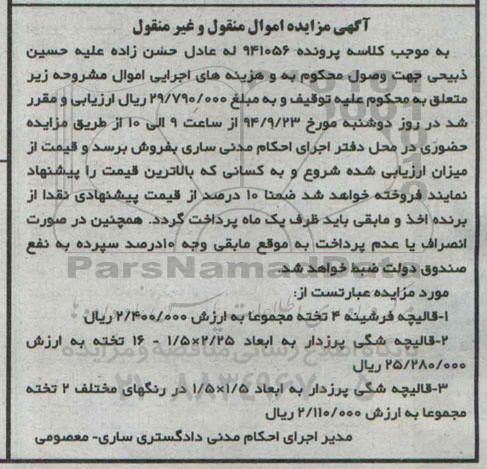 آگهی مزایده اموال منقول و غیر منقول
به موجب کلاسه پرونده ۹۴۱۰۵۶ له عادل حسن زاده علیه حسین
ذبیحی جهت وصول محکوم به و هزینه های اجرایی اموال مشروحه زیر
متعلق به محکوم علیه توقیف و به مبلغ ۲۹/۷۹۰/۰۰۰ ریال ارزیابی و مقرر
شد در روز دوشنبه مورخ ۹۴/۹/۲۳ از ساعت ۹ الی ۱۰ از طریق مزایده
حضوری در محل دفتر اجرای احکام مدنی ساری بفروش برسد و قیمت از
میزان ارزیابی شده شروع و به کسانی که بالاترین قیمت را پیشنهاد
نمایند فروخته خواهد شد ضمنا ۱۰ درصد از قیمت پیشنهادی نقدا از
برنده اخذ و مابقی باید ظرف یک ماه پرداخت گردد. همچنین در صورت
انصراف یا عدم پرداخت به موقع مابقی وجه ۱۰درصد سپرده به نفع
صندوق دولت ضبط خواهد شد.
ParsNamadData
مورد مزایده عبارتست از:
۱-قالیچه فرشینه ۴ تخته مجموعا به ارزش ۲/۴۰۰/۰۰۰ ریال
۲-قالیچه شگی پرزدار به ابعاد ۲/۲۵×۱/۵ - ۱۶ تخته به ارزش
پایگاه اطلاع رسانی مناقصه و مزایده
۲۵/۲۸۰/۰۰۰ ریال
۰۲۱-۸۸۳۴۹۶۷۰-۵
۳-قالیچه شگی پرزدار به ابعاد ۱/۵×۱/۵ در رنگهای مختلف ۲ تخته
مجموعا به ارزش ۲/۱۱۰/۰۰۰ ریال
مدیر اجرای احکام مدنی دادگستری ساری- معصومی